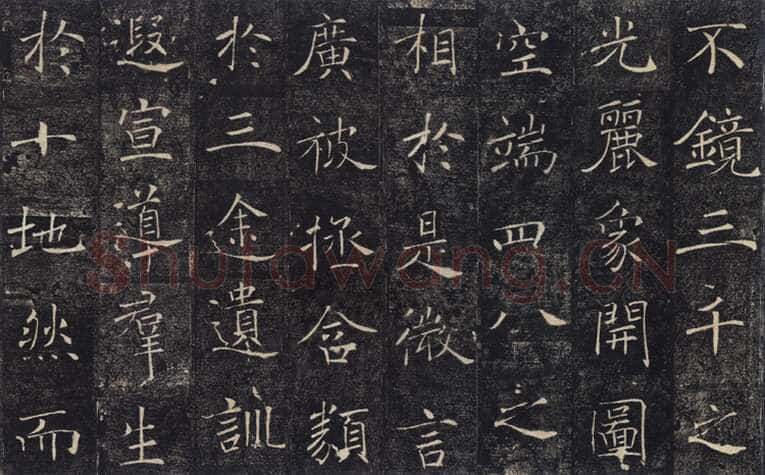 不鏡三千之
光麗象開圖
空端四八之
相於是微言
廣被拯含類
於三途遺訓
遐宣道羣生
於十地然而
Shufawang.CN